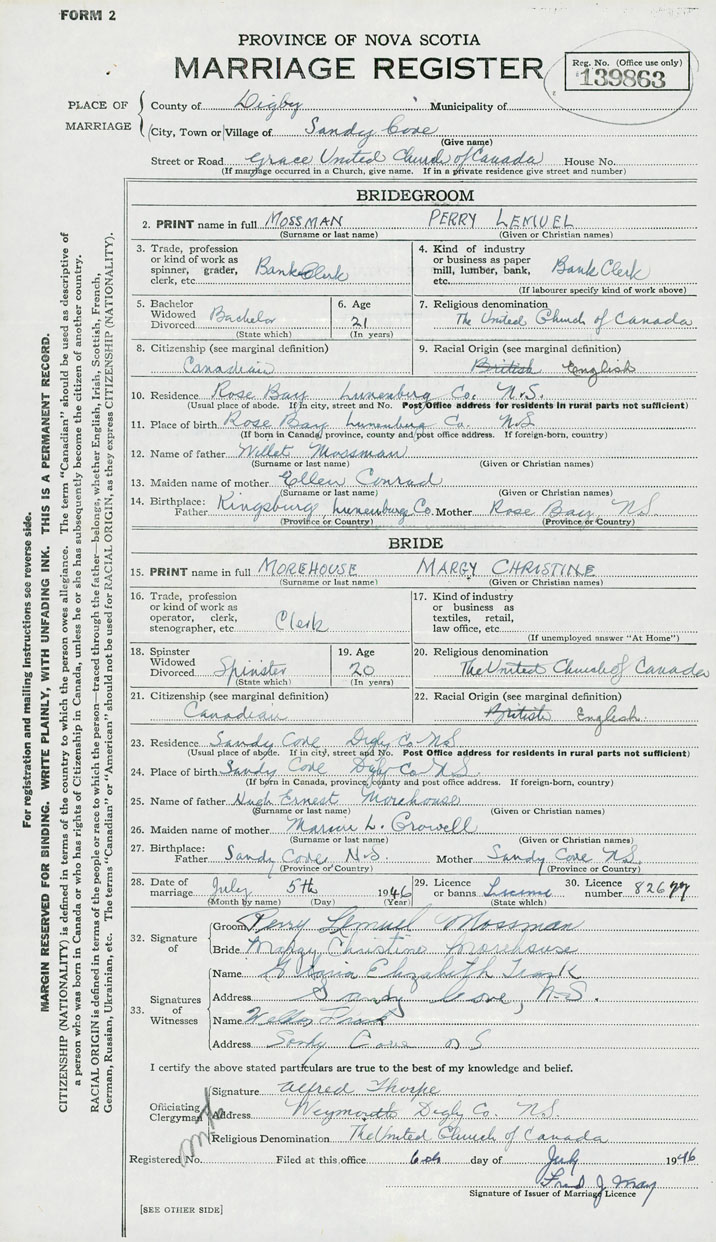 FORM 2
PROVINCE OF NOVA SCOTIA
MARRIAGE REGISTER
Reg. No. (Office use only)
139863
PLACE OF MARRIAGE
County of Digby Municipality of
(City, Town or Village of Sandy Cove
(Give name)
Street or Road Grace United Church of Canada House No.
(If marriage occurred in a Church, give name. If in a private residence give street and number)
BRIDEGROOM
2. PRINT name in full MOSSMAN PERRY LEMUEL
(Surname or last name) (Given or Christian names)
3. Trade, profession or kind of work as spinner, grader, clerk, etc. Bank Clerk
4. Kind of industry or business as paper mill, lumber, bank, etc. Bank Clerk
(If labourer specify kind of work above)
5. Bachelor Widowed Divorced Bachelor
(State which)
6. Age 21
(In years)
7. Religious denomination
The United Church of Canada
8. Citizenship (see marginal definition)
Canadian
9. Racial Origin (see marginal definition)
British English
10. Residence Rose Bay Lunenburg Co. N.S.
(Usual place of abode. If in city, street and No. Post Office address for residents in rural parts not sufficient)
11. Place of birth Rose Bay Lunenburg Co. N.S
(If born in Canada, province, county and post office address. If foreign-born, country)
12. Name of father Willet Mossman
(Surname or last name) (Given or Christian names)
13. Maiden name of mother Ellen Conrad
(Surname or last name) (Given or Christian names)
14. Birthplace: Father Kingsburg Lunenburg Co. Mother Rose Bay N.S
(Province or Country) (Province or Country)
BRIDE
15. PRINT name in full MOREHOUSE MARGY CHRISTINE
(Surname or last name) (Given or Christian names)
16. Trade, profession or kind of work as operator, clerk, stenographer, etc Clerk
17. Kind of industry or business as textiles, retail, law office, etc.
(If unemployed answer "At Home")
18. Spinster Widowed Divorced Spinster
(State which)
19. Age 20
(In years)
20. Religious denomination
The United Church of Canada
21. Citizenship (see marginal definition)
Canadian
22. Racial Origin (see marginal definition)
British English.
23. Residence Sandy Cove Digby Co N.S
(Usual place of abode. If in city, street and No. Post Office address for residents in rural parts not sufficient)
24. Place of birth Sandy Cove Digby Co N.S.
(If born in Canada, province, county and post office address. If foreign-born, country)
25. Name of father Hugh Ernest Morehouse
(Surname or last name) (Given or Christian names)
26. Maiden name of mother L. Crowell
(Surname or last name) (Given or Christian names)
27. Birthplace: Father Sandy Cove N.S. Mother Sandy Cove N.S.
(Province or Country) (Province or Country)
28. Date of marriage July 5th 1946
(Month by name) (Day) (Year)
29. Licence or banns License
(State which)
30. Licence number 82677
32. Signature of
Groom Perry Lemuel Mossman
Bride Margy Christine Morehouse
33. Signatures of Witnesses
Name Elizabeth
Address Sandy Cove, N.S.
Name
Address Sandy Cove N S
I certify the above stated particulars are true to the best of my knowledge and belief.
Officiating Clergyman
Signature Alfred Thorpe
Address Weymouth Digby Co. N.S.
Religious Denomination The United Church of Canada
Registered No. Filed at this office 6th day of July 1946
Fred J.
Signature of Issuer of Marriage Licence
[SEE OTHER SIDE]
For registration and mailing instructions see reverse side.
MARGIN RESERVED FOR BINDING. WRITE PLAINLY, WITH UNFADING INK. THIS IS A PERMANENT RECORD.
CITIZENSHIP (NATIONALITY) is defined in terms of the country to which the person owes allegiance. The term "Canadian" should be used as descriptive of
a person who was born in Canada or who has rights of Citizenship in Canada, unless he or she has subsequently become the citizen of another country.
RACIAL ORIGIN is defined in terms of the people or race to which the person—traced through the father—belongs, whether English, Irish, Scottish, French,
German, Russian, Ukrainian, etc. The terms "Canadian" or "American" should not be used for RACIAL ORIGIN, as they express CITIZENSHIP (NATIONALITY).